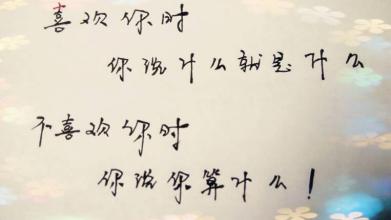 喜欢你时
你说什么就是什么
不喜欢你时
你说你算什么！